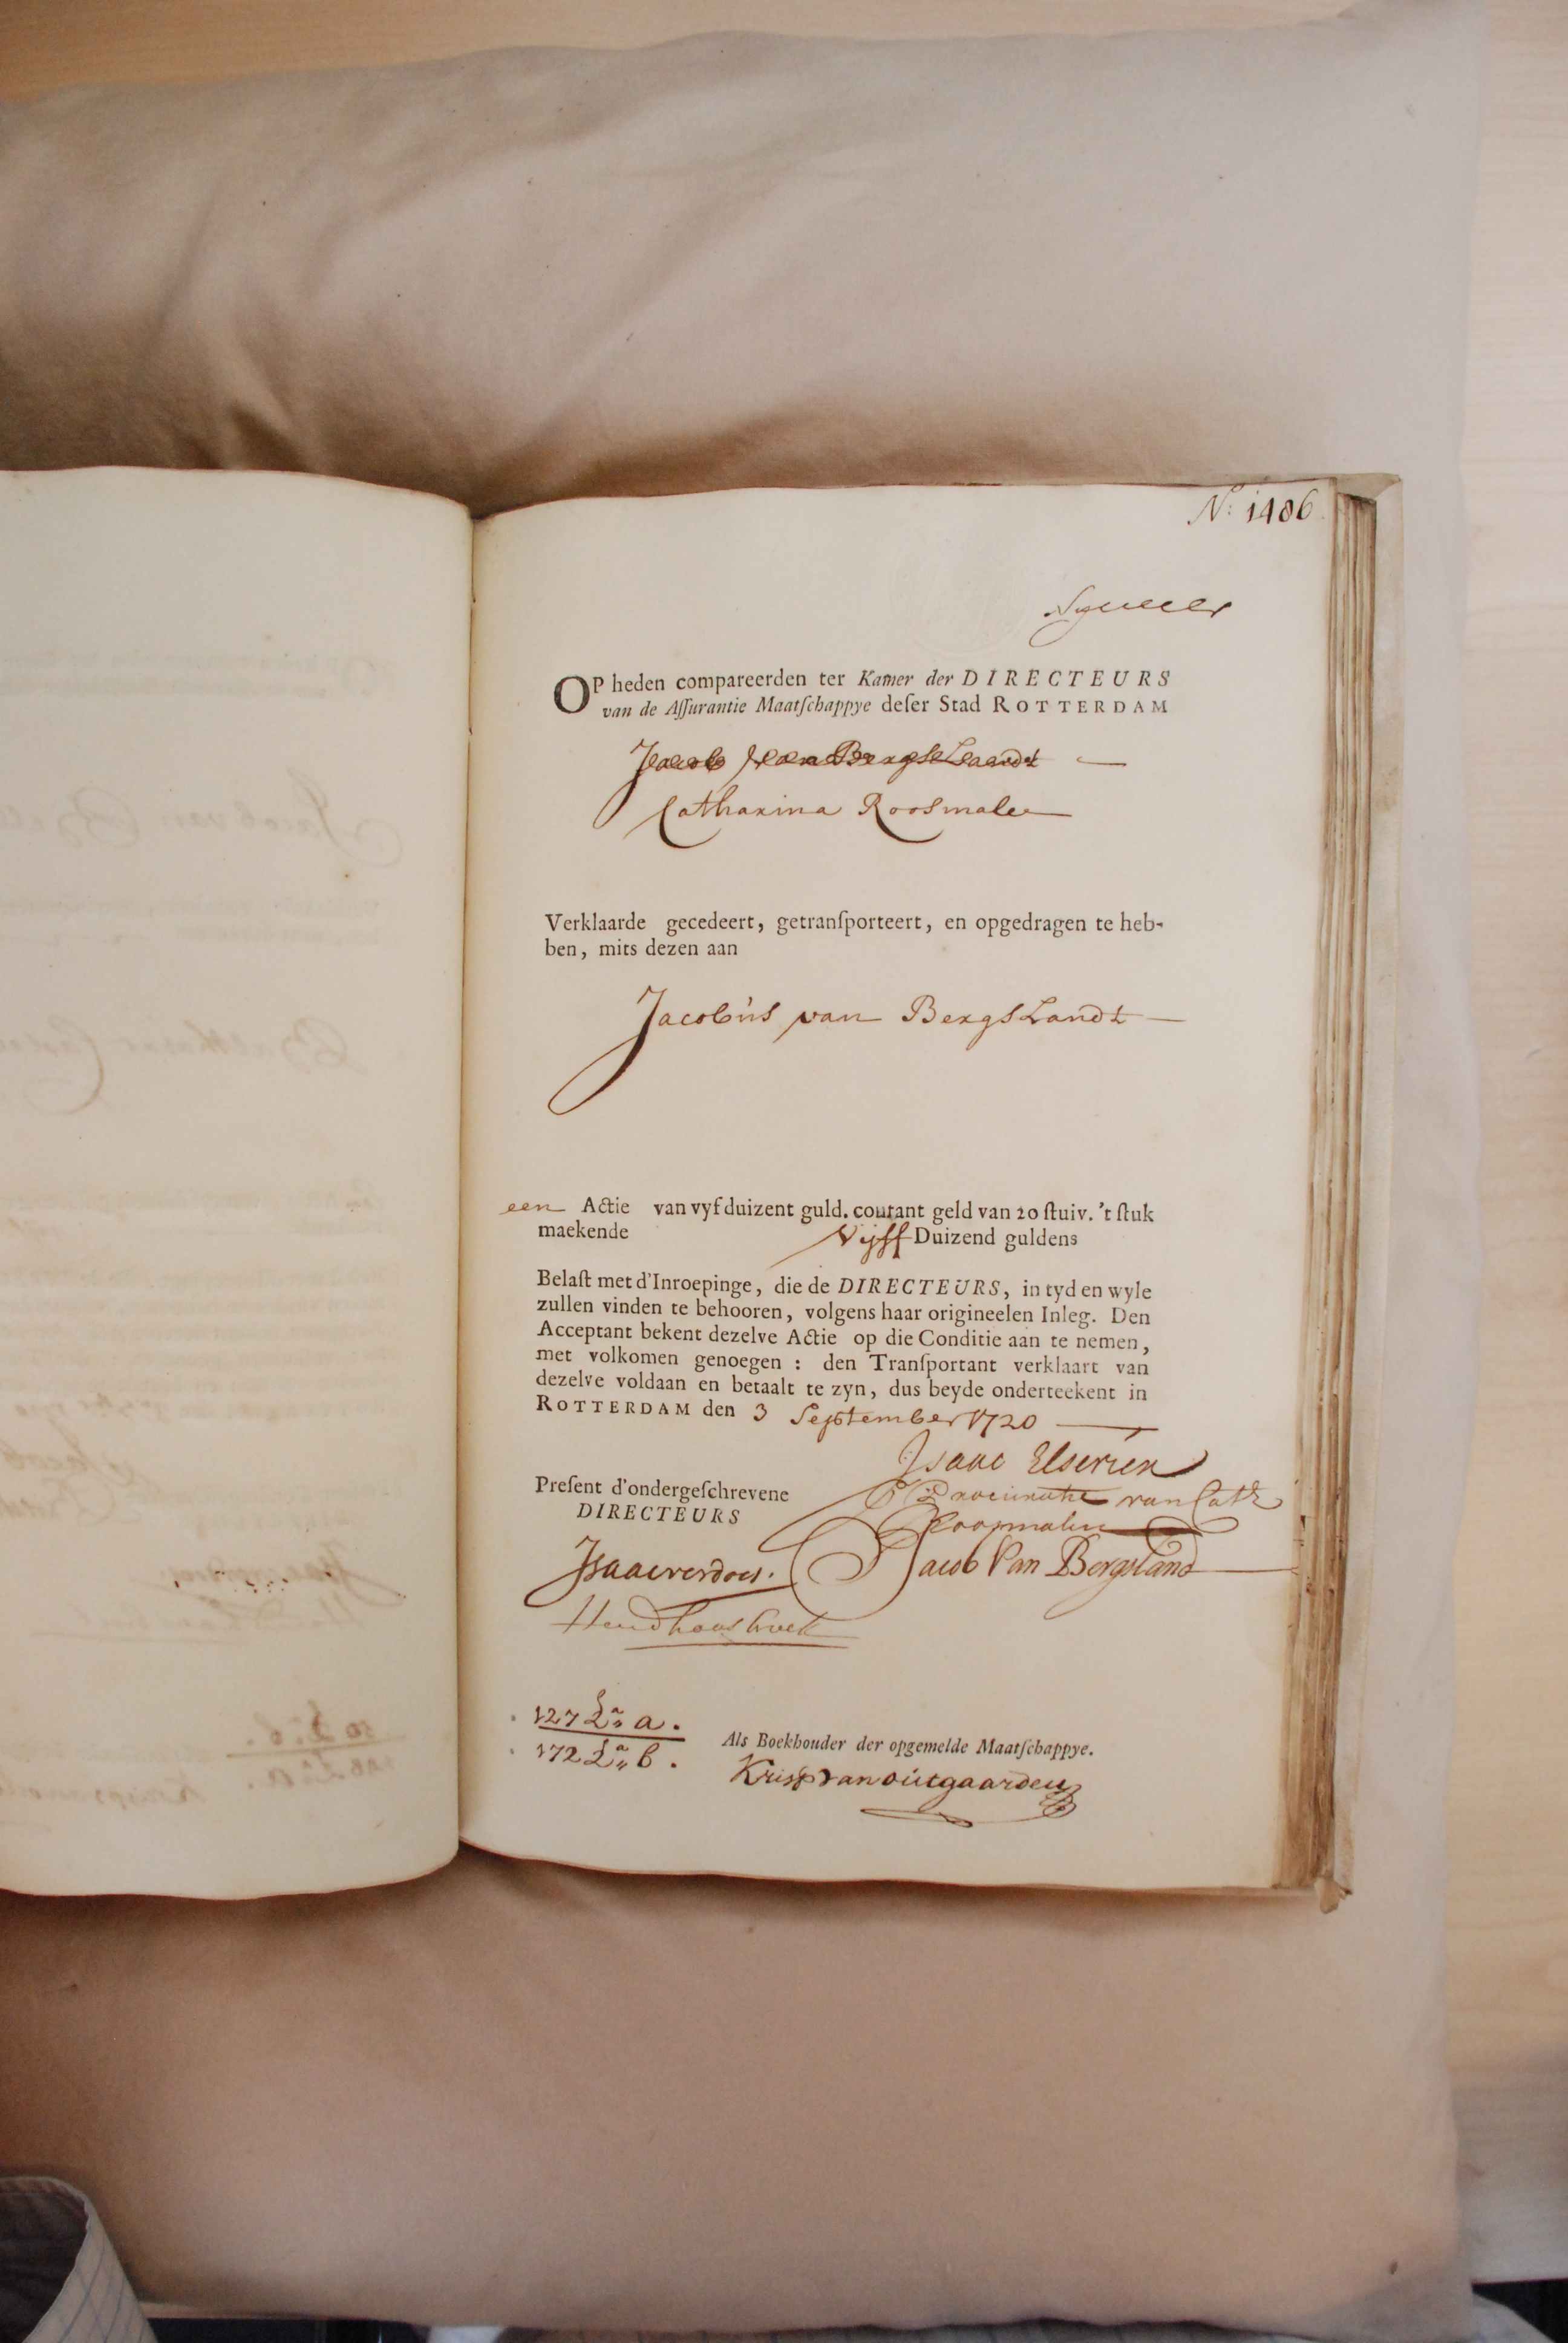 N: 1486
OP heden compareerden ter Kamer der DIRECTEURS
van de Aſſurantie Maatſchappye deſer Stad ROTTERDAM
Jacob van BergsLandt
Catharina Roosmale
Verklaarde gecedeert, getranſporteert, en opgedragen te heb-
ben, mits dezen aan
Jacobus van BergsLandt
een Actie van vyf duizent guld. courant geld van 20 ſtuiv. 't ſtuk
maekende Vijff Duizend guldens
Belaſt met d'Inroepinge, die de DIRECTEURS, in tyd en wyle
zullen vinden te behooren, volgens haar origineelen Inleg. Den
Acceptant bekent dezelve Actie op die Conditie aan te nemen,
met volkomen genoegen : den Tranſportant verklaart van
dezelve voldaan en betaalt te zyn, dus beyde onderteekent in
ROTTERDAM den 3 September 1720
Isaac Elsevier
Procuratie van Cath
Roosmalen
Preſent d'ondergeſchrevene
DIRECTEURS
Isaac verdoes.
Jacob Van Bergsland
127 La a.
172 La b.
Als Boekhouder der opgemelde Maatſchappye.
Krisp van outgaarden